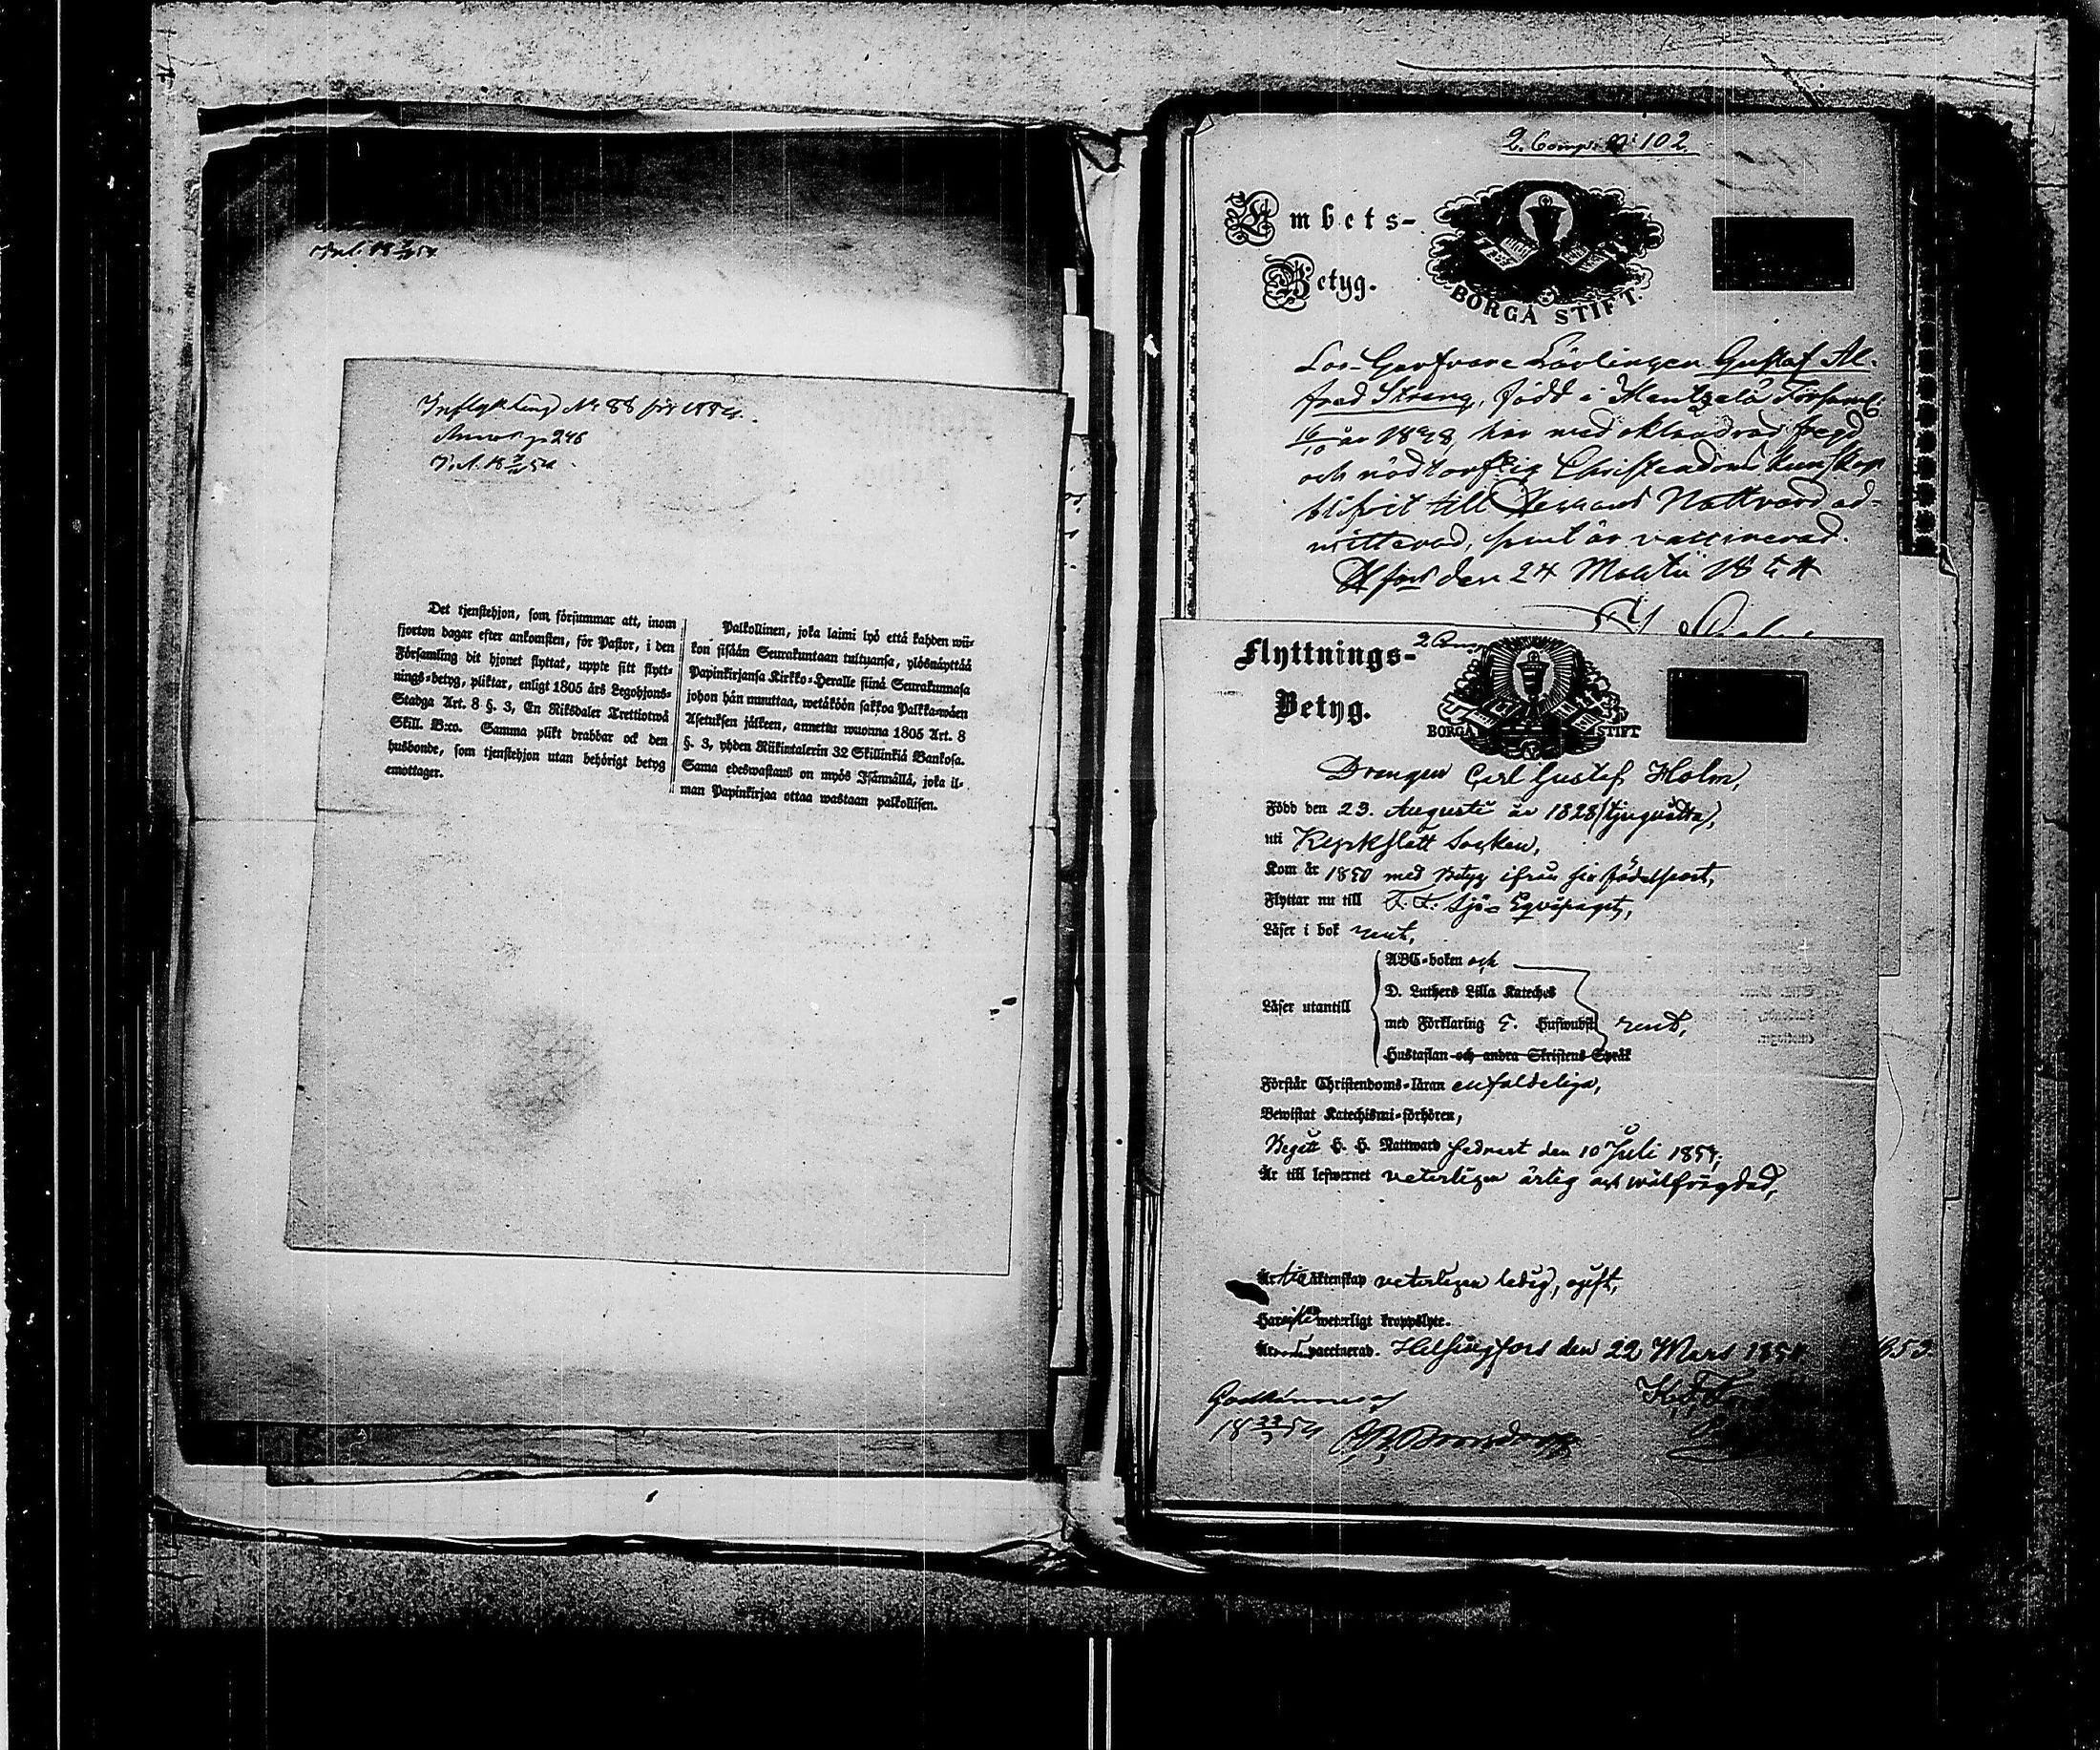 Inflyttning № 88 för 1854.
p 246
Det tjenstehjon, som försummar att, inom
fjorton dagar efter ankomsten, för Pastor, i den
Församling dit hjonet flyttat, uppte sitt flytt-
nings-betyg, pliktar, enligt 1805 års Legohjons-
Stadga Art. 8 §. 3, En Riksdaler Trettiotwå
Skill. B:co. Samma plikt drabbar ock den
husbonde, som tjenstehjon utan behörigt betyg
emottager.
Palkollinen, joka laimi lyö että kahden wii-
kon sisään Seurakuntaan tultuansa, ylösnäyttää
Papinkirjansa Kirkko-Herralle siinä Seurakunnasa
johon hän muuttaa, wetäköön sakkoa Palkka-wäen
Asetuksen jälkeen, annettu wuonna 1805 Art. 8
§. 3, yhden Riikintalerin 32 Skillinkiä Bankosa.
Sama edeswastaus on myös Isännällä, joka il-
man Papinkirjaa ottaa wastaan palkollisen.
2. Comp. № 102.
Embets-
Betyg.
BORGÅ STIFT.
Garfvare Lärlingen Gustaf Al-
fred Streng, född i Mentzelä Församl.
16/10 år 1838, har med oklandrad fregd
och nödtorftig Christendoms kunskap
blifvit till Herrans Nattvard ad-
mitterad, samt är vaccinerad.
H:fors den 24 Martii 1854
Flyttnings-
Betyg.
2 Comp
BORGÅ STIFT
Drengen Carl Gustaf Holm,
Född den 23. Augusti år 1828 (tjuguåtta),
uti Kyrkslätt Socken,
Kom år 1850 med Betyg ifrån sin födelseort,
Flyttar nu till F. F. Sjö-Eqvipaget,
Läser i bok rent,
Läser utantill
ABC-boken och
D. Luthers Lilla Kateches
med Förklaring rent,
Hustaflan och andra Skriftens Språk
Förstår Christendoms-läran enfaldeliga,
Bewistat Katechismi-förhören,
Begått H. H. Nattward sednast den 10 Juli 1853,
Är till lefwernet veterligen ärlig och wälfrägdad,
Är till äktenskap veterligen ledig, ogift,
Har icke weterligt kroppslyte.
Är vaccinerad. Helsingfors den 22 Mars 1854
1853.
Godkännes af
18 23/3 54